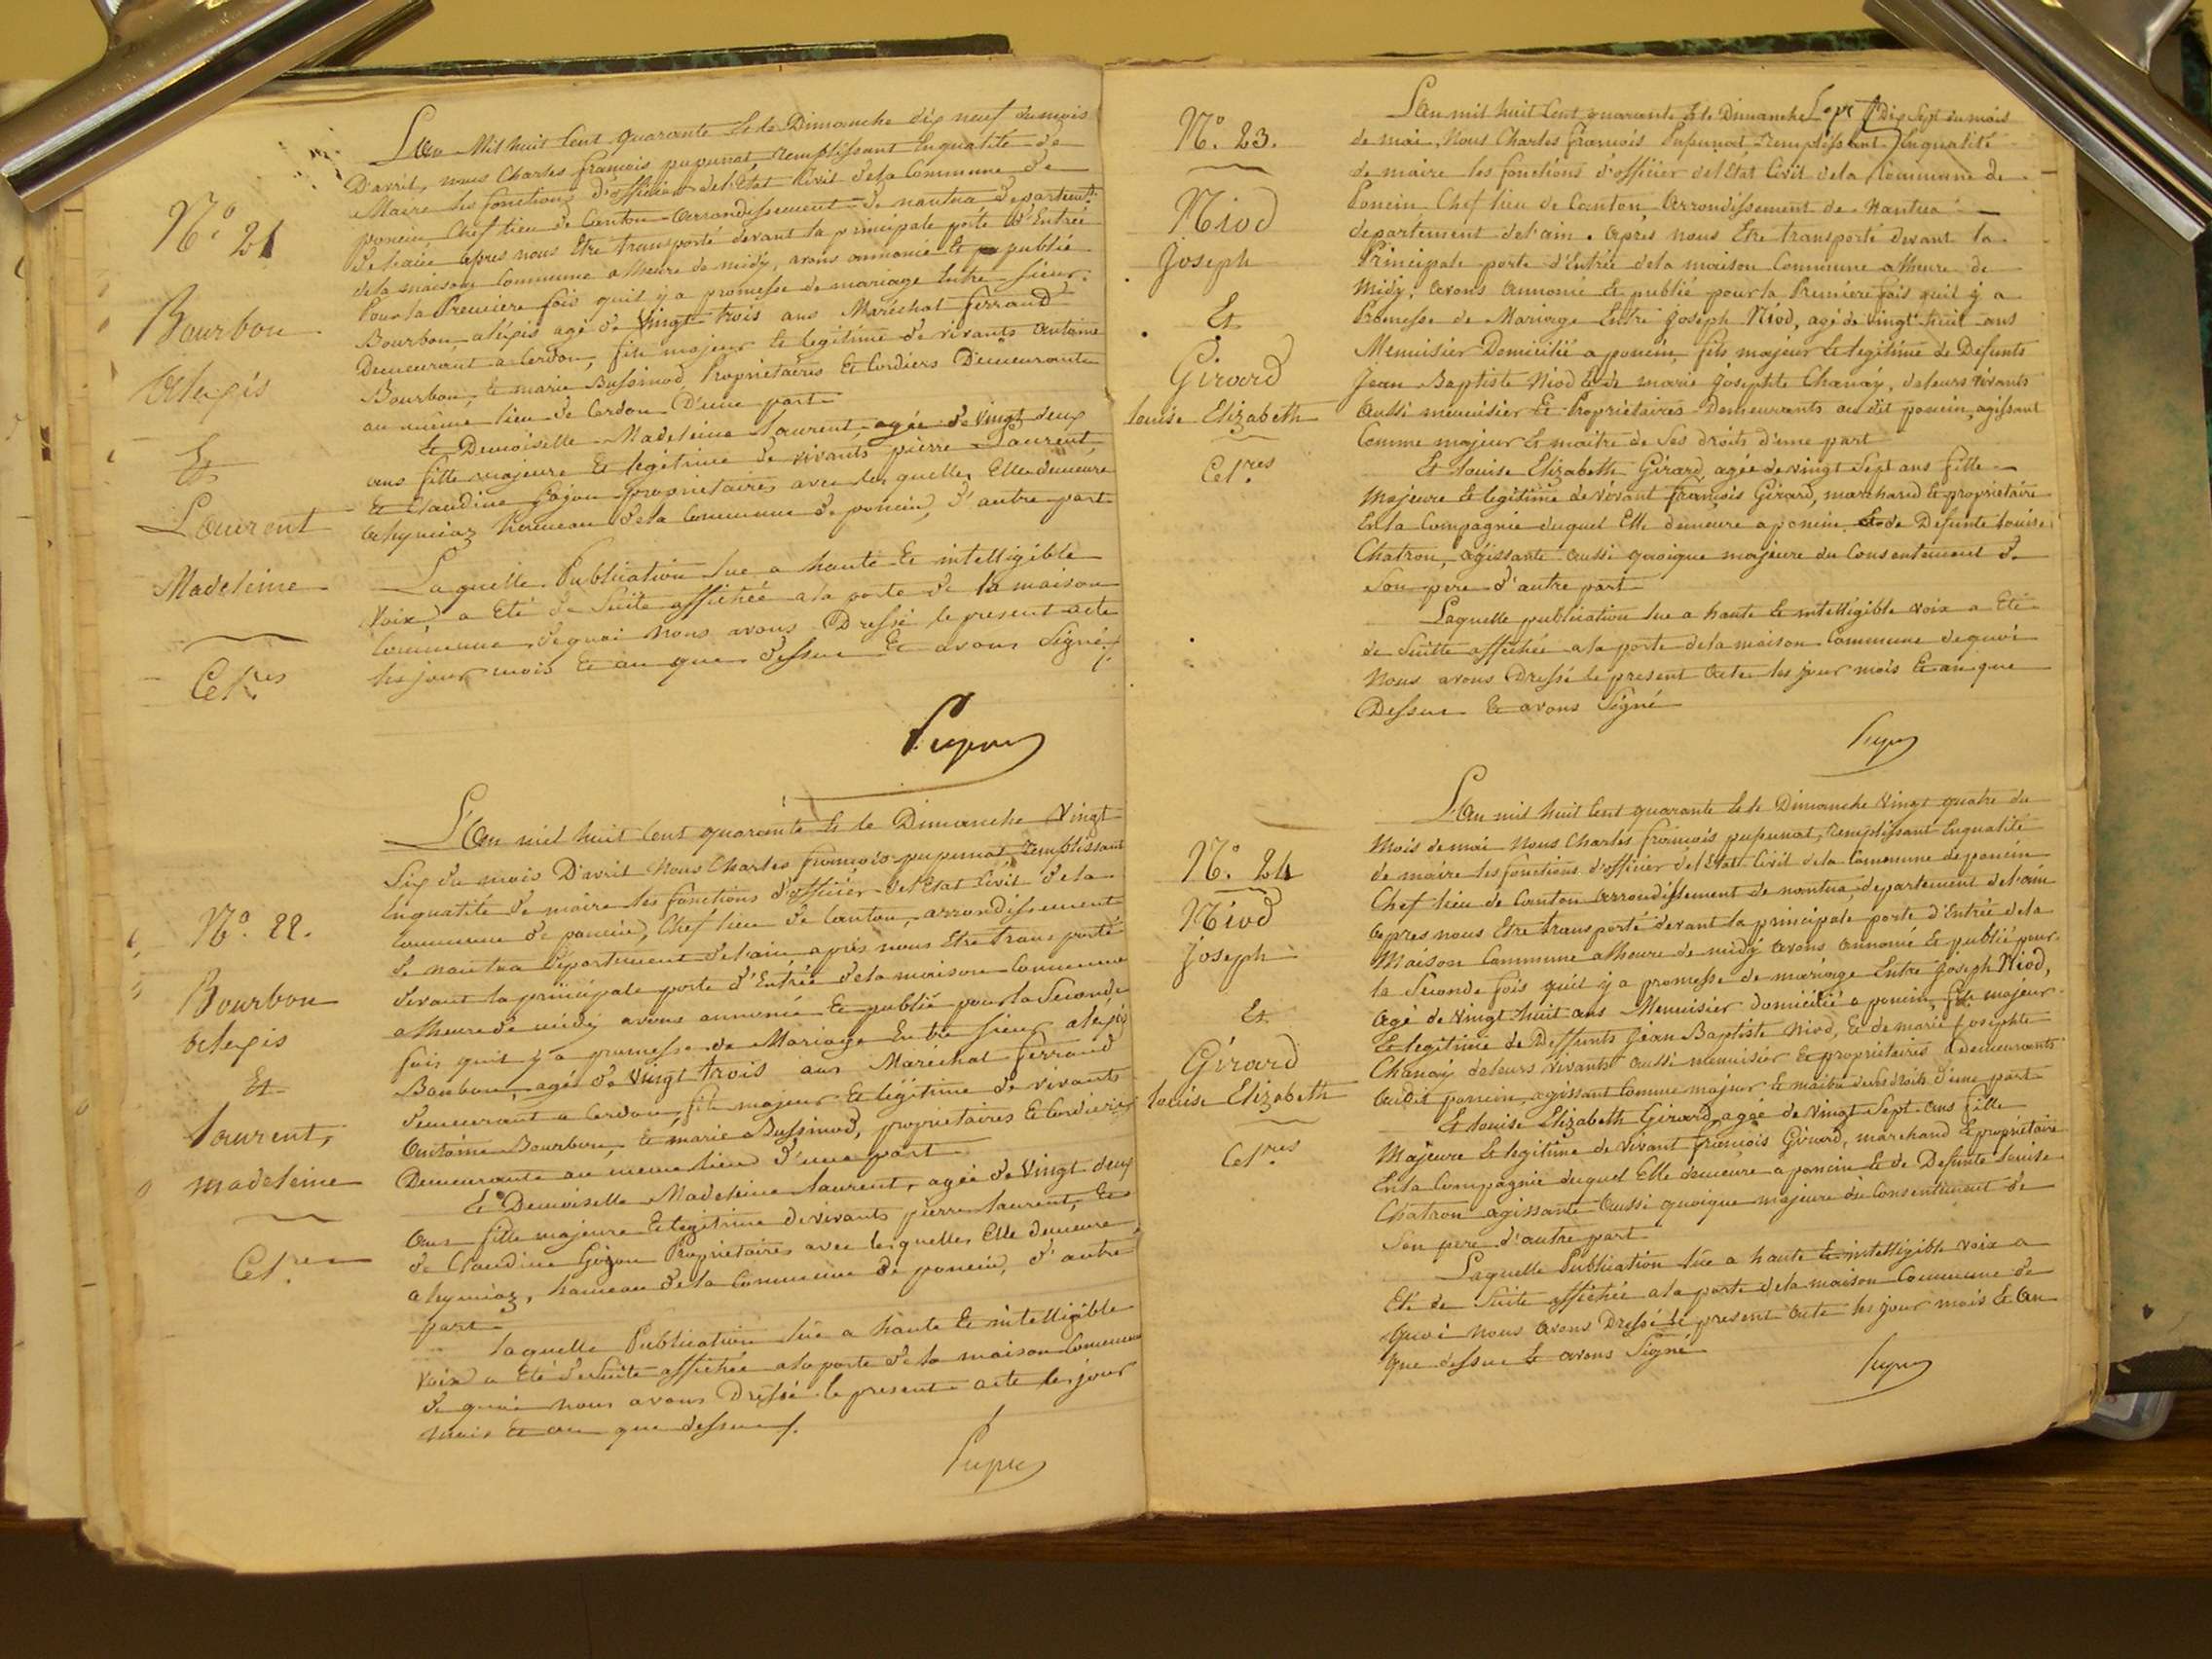 N.o 21
Bourbon
Alexis
Et
Laurent
Madeleine
Cel.res
L'an Mil huit Cent quarante Et le Dimanche dix neuf du mois
D'avril, nous Charles françois pupunat, remplissant En qualité de
Maire les fonctions d'officier de l'Etat Civil de la Commune de
poncin Chef lieu de Canton Arrondissement de nantua Departemt.
De l'ain apres nous Etre transporté devant la principale porte d'Entrée
de la maison Commune a l'heure de midy, avons annoncé Et publié
Pour la Premiere fois quil y a promesse de mariage Entre sieur
Bourbon, alexis agé de Vingt trois ans Maréchal ferrand
Demeurant a Cerdon, fils majeur Et legitime de vivants Antoine
Bourbon, Et marie Bussinod, Propriétaires Et Cordiers Demeurants
au même lieu de Cerdon D'une part
Et Demoiselle Madeleine Laurent, agée de Vingt deux
ans fille majeure Et legitime de vivants pierre Laurent,
Et Claudine Gojon propriétaires avec lesquelles Elle demeure
a hameau de la Commune de poncin, d'autre part
Laquelle Publication lue a haute Et intelligible
Voix, a Eté de Suite affichée a la porte de la maison
Commune, de quoi nous avons Dressé le present acte
les jour mois Et an que dessus Et avons Signé
N.o 22.
Bourbon
Alexis
Et
Laurent,
madeleine
Cel.res
L'An mil huit Cent quarante Et le Dimanche Vingt
Six du mois D'avril Nous Charles françois pupunat remplissant
En qualité de maire les fonctions d'officier de l'Etat Civil de la
Commune de poncin, Chef lieu de Canton, arrondissement
de nantua Département de l'ain, après nous Etre transporté
devant la principale porte d'Entrée de la maison Commune
a l'heure de midy avons annoncé Et publié pour la Seconde
fois quil y a promesse de Mariage Entre sieur alexis
Bourbon, agé de Vingt trois ans Maréchal ferrand
demeurant a Cerdon, fils majeur Et légitime de vivants
Antoine Bourbon, Et marie Bussinod, propriétaires Et Cordiers
Demeurants au meme lieu D'une part
Et Demoiselle Madeleine Laurent, agée de Vingt deux
Ans fille majeure Et legitime de vivants pierre Laurent, Et
de Claudine Gojon Propriétaires avec lesquelles Elle demeure
a hameau de la Commune de poncin, d'autre
part
laquelle Publication lue a haute Et intelligible
Voix a Eté de Suite affichée a la porte de la maison Commune
de quoi nous avons Dressé le present acte les jour
mois Et an que dessus
N.o 23.
Niod
Joseph
Et
Girard
louise Elizabeth
Cel.res
L'an mil huit Cent quarante Et le Dimanche Dix Sept du mois
de mai, Nous Charles françois Pupunat Remplissant En qualité
de maire les fonctions d'officier de l'Etat Civil de la Commune de
Poncin Chef lieu de Canton Arrondissement de Nantua
departement de l'ain. Apres nous Etre transporté devant la
Principale porte d'Entrée de la maison Commune a l'heure de
Midy, avons Annoncé Et publié pour la Premiere fois quil y a
Promesse de Mariage Entre Joseph Niod, agé de vingt huit ans
Menuisier Domicilié a poncin, fils majeur Et legitime de Defunts
Jean Baptiste Niod Et de marie Josephte Chanay, de leurs vivants
Aussi menuisier Et Propriétaires Demeurants au dit poncin, agissant
Comme majeur Et maitre de Ses droits d'une part
Et louise Elizabeth Girard, agée de vingt Sept ans fille
Majeure Et legitime de vivant françois Girard, marchand Et propriétaire
En la Compagnie duquel Elle demeure a poncin Et de Defunte louise
Chatron, agissante Aussi quoique majeure du Consentement de
Son pere d'autre part
Laquelle publication lue a haute Et intelligible voix a Eté
de Suitte affichée a la porte de la maison Commune de quoi
Nous avons Dressé le present Acte les jour mois Et an que
Dessus Et avons Signé
N.o 24
Niod
Joseph
Et
Girard
louise Elizabeth
Cel.res
L'An mil huit Cent quarante Et le Dimanche Vingt quatre du
Mois de mai Nous Charles françois pupunat, remplissant En qualité
de maire les fonctions d'officier de l'Etat Civil de la Commune de poncin
Chef lieu de Canton Arrondissement de nantua, departement de l'ain
Apres nous Etre transporté devant la principale porte d'Entrée de la
Maison Commune a l'heure de midy Avons Annoncé Et publié pour
la Seconde fois quil y a promesse de mariage Entre Joseph Niod,
Agé de Vingt huit ans Menuisier domicilié a poncin, fils majeur
Et legitime de Deffunts Jean Baptiste Niod, Et de marie Josephte
Chanay de leurs vivants Aussi menuisier Et propriétaires demeurants
Au dit poncin, agissant Comme majeur Et maitre de Ses droits d'une part
Et louise Elizabeth Girard, agée de Vingt Sept ans fille
Majeure Et legitime de Vivant françois Girard, marchand Et propriétaire
En la Compagnie duquel Elle demeure a poncin Et de Defunte louise
Chatron agissante Aussi quoique majeure du Consentement de
Son pere d'autre part
Laquelle Publication lue a haute Et intelligible Voix a
Eté de Suite affichée a la porte de la maison Commune de
Quoi nous Avons Dressé le present Acte les jour mois Et An
que dessus Et avons Signé